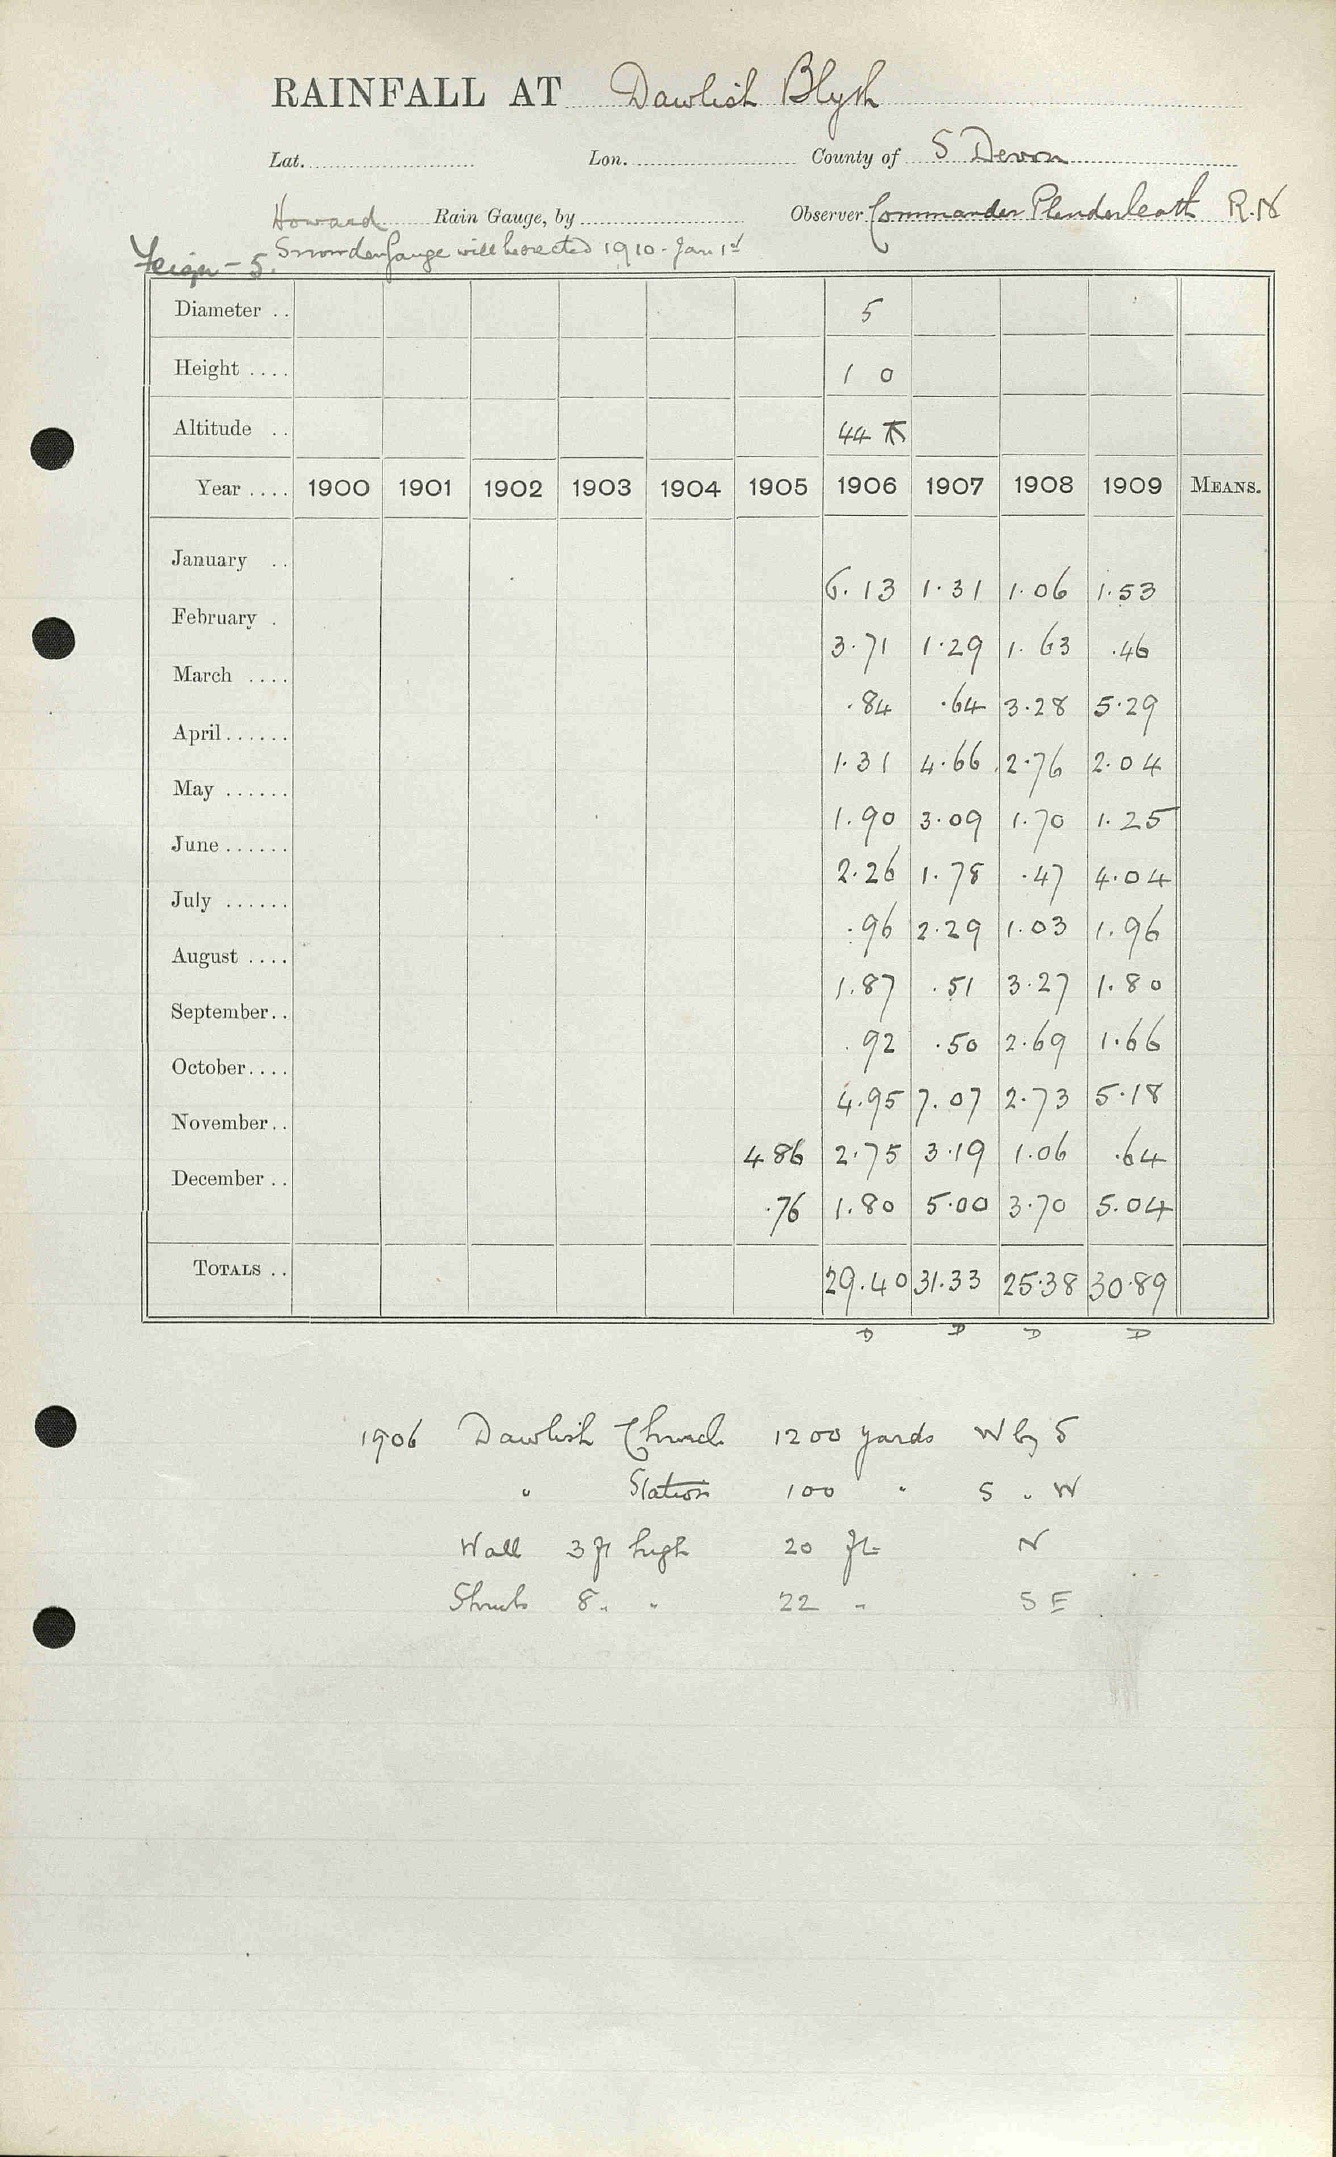 RAINFALL AT Dawlish Blyth
Lat. Lon. County of S Devon
Howard Rain Gauge, by Observer Commander Plenderleath R.N
Teign - 5. Snowden Gauge will be erected 1910 - Jan 1st
Diameter .. 5
Height .... 1 0
Altitude .. 44
Year .... 1900 1901 1902 1903 1904 1905 1906 1907 1908 1909 MEANS.
January .. 6.13 1.31 1.06 1.53
February . 3.71 1.29 1.63 .46
March .... .84 .64 3.28 5.29
April...... 1.31 4.66 2.76 2.04
May ...... 1.90 3.09 1.70 1.25
June ...... 2.26 1.78 .47 4.04
July ...... .96 2.29 1.03 1.96
August .... 1.87 .51 3.27 1.80
September.. .92 .50 2.69 1.66
October.... 4.95 7.07 2.73 5.18
November.. 4 86 2.75 3.19 1.06 .64
December .. .76 1.80 5.00 3.70 5.04
TOTALS .. 29.40 31.33 25.38 30.89
D D D D
1906 Dawlish Church 1200 yards W by S
" Station 100 " S " W
Wall 3 ft high 20 ft N
Shrubs 8 " " 22 " S E